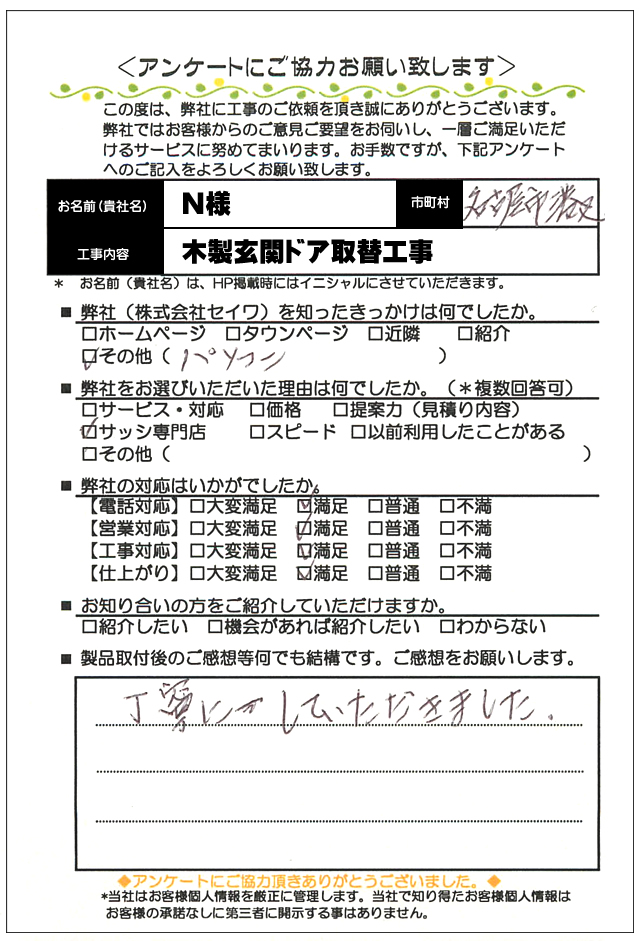 ＜アンケートにご協力お願い致します＞
この度は、弊社に工事のご依頼を頂き誠にありがとうございます。
弊社ではお客様からのご意見ご要望をお伺いし、一層ご満足いただ
けるサービスに努めてまいります。お手数ですが、下記アンケート
へのご記入をよろしくお願い致します。
お名前(貴社名) N様 市町村 名古屋市港区
工事内容 木製玄関ドア取替工事
＊ お名前（貴社名）は、HP掲載時にはイニシャルにさせていただきます。
■ 弊社（株式会社セイワ）を知ったきっかけは何でしたか。
□ホームページ □タウンページ □近隣 □紹介
☑その他（ パソコン ）
■ 弊社をお選びいただいた理由は何でしたか。（＊複数回答可）
□サービス・対応 □価格 □提案力（見積り内容）
☑サッシ専門店 □スピード □以前利用したことがある
□その他（ ）
■ 弊社の対応はいかがでしたか。
【電話対応】□大変満足 ☑満足 □普通 □不満
【営業対応】□大変満足 ☑満足 □普通 □不満
【工事対応】□大変満足 ☑満足 □普通 □不満
【仕上がり】□大変満足 ☑満足 □普通 □不満
■ お知り合いの方をご紹介していただけますか。
□紹介したい □機会があれば紹介したい □わからない
■ 製品取付後のご感想等何でも結構です。ご感想をお願いします。
丁寧にかしていただきました.
◆アンケートにご協力頂きありがとうございました。◆
*当社はお客様個人情報を厳正に管理します。当社で知り得たお客様個人情報は
お客様の承諾なしに第三者に開示する事はありません。